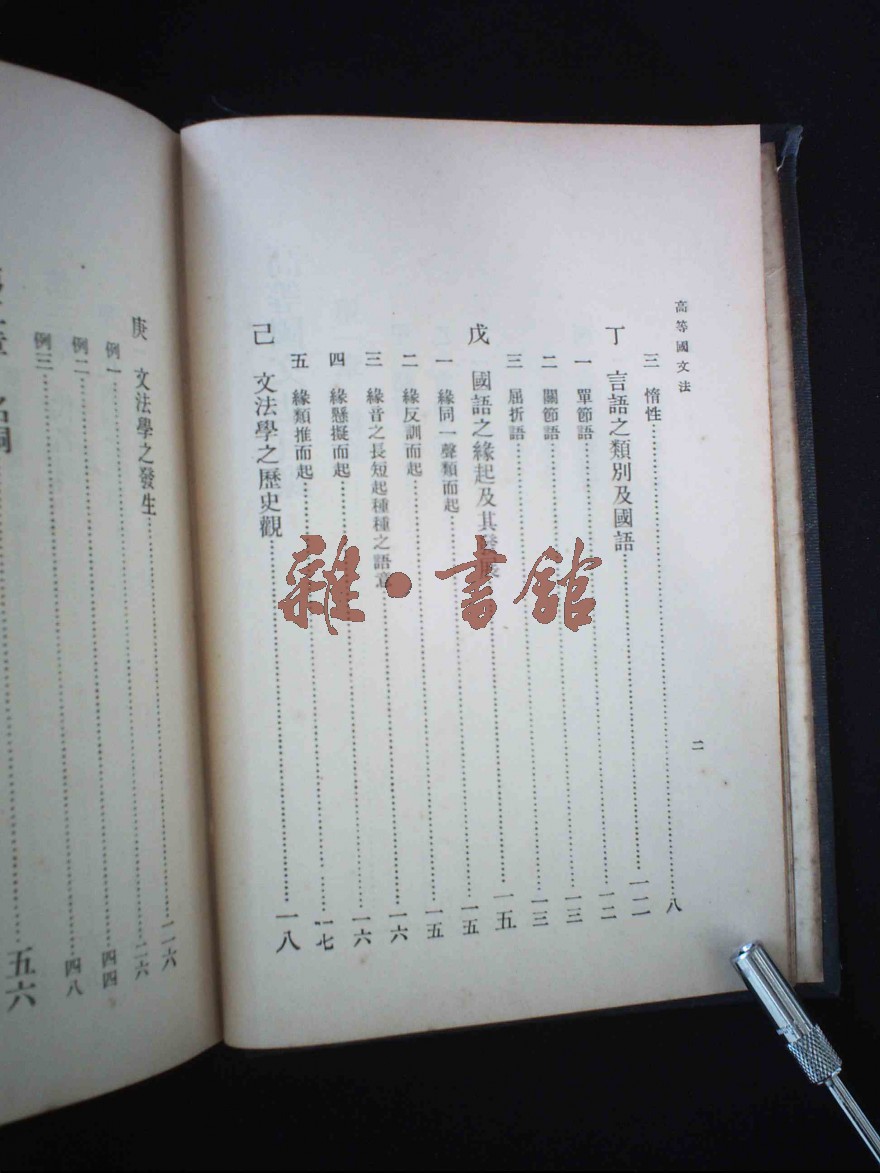 高等國文法
三 惰性……八
丁 言語之類別及國語……一二
一 單節語……一二
二 關節語……一三
三 屈折語……一三
戊 國語之緣起及其發展……一五
一 緣同一聲類而起……一五
二 緣反訓而起……一五
三 緣音之長短起種種之語意……一六
四 緣懸擬而起……一六
五 緣類推而起……一七
己 文法學之歷史觀……一八
二
庚 文法學之發生……二六
例一……二六
例二……四四
例三……四八
名詞……五六
雜·書館